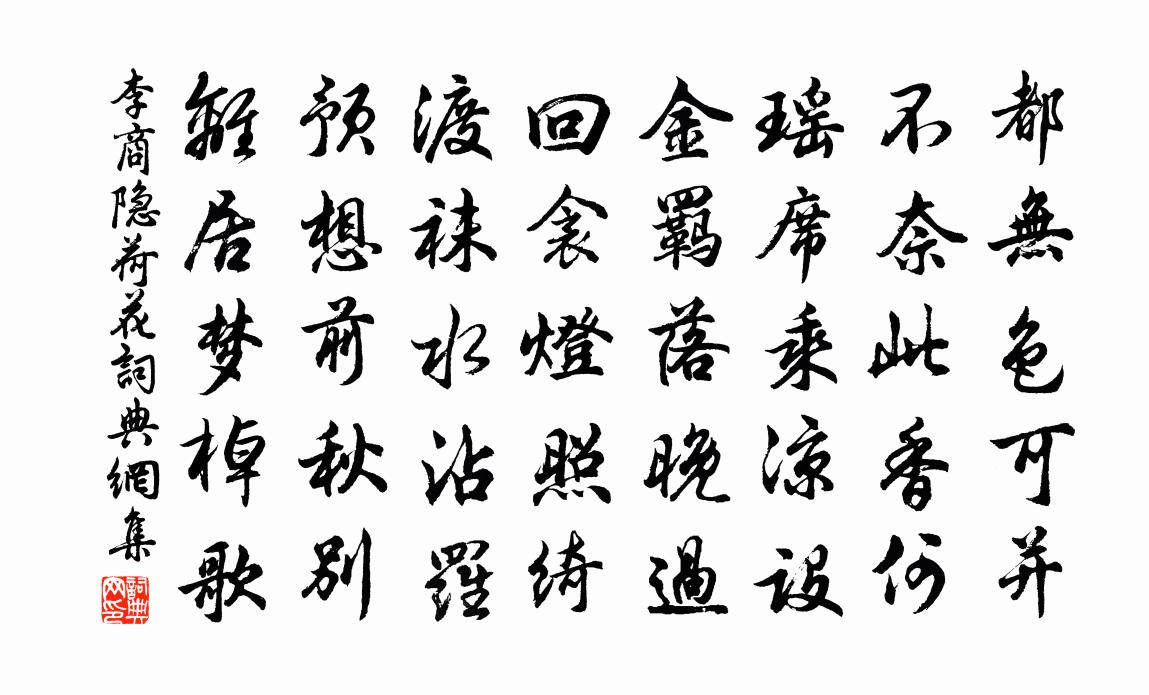 都無色可并
不奈此香何
瑶席乘涼設
金羁落晚過
回衾燈照綺
渡袜水沾羅
預想前秋别
離居梦棹歌
李商隐荷花詞典網集
詞典网印